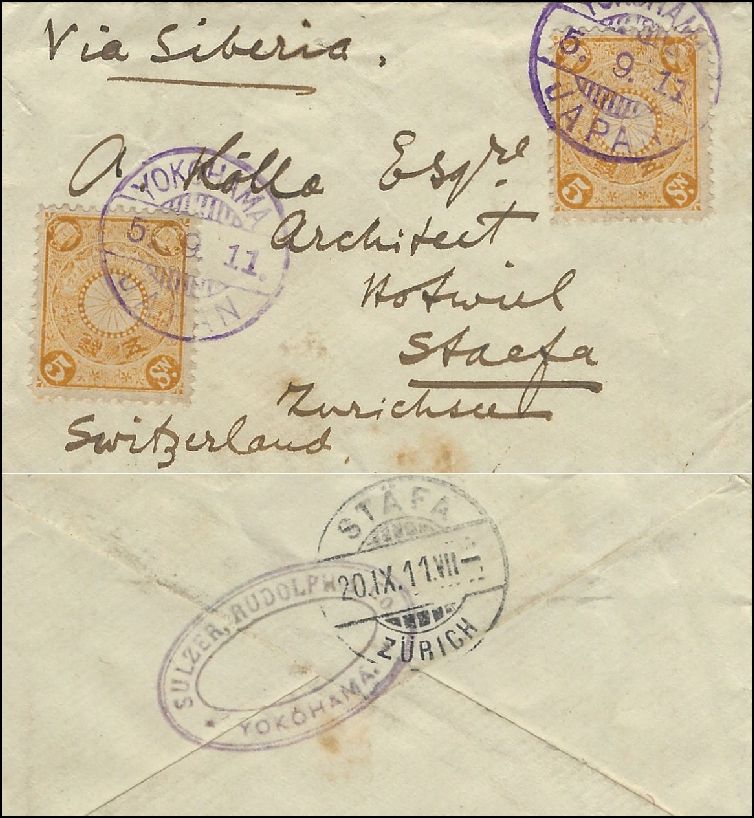 Via Siberia.
YOKOHAMA
5. 9. 11
JAPA
A Kölla Esqre
YOKOHAMA
5. 9. 11.
JAPAN
Architect
Hotwiel
Staefa
Zurichsee
Switzerland.
5 Sn.
5 Sn.
STÄFA
20.IX.11.VII
ZÜRICH
SULZER, RUDOLPH
YOKOHAMA.